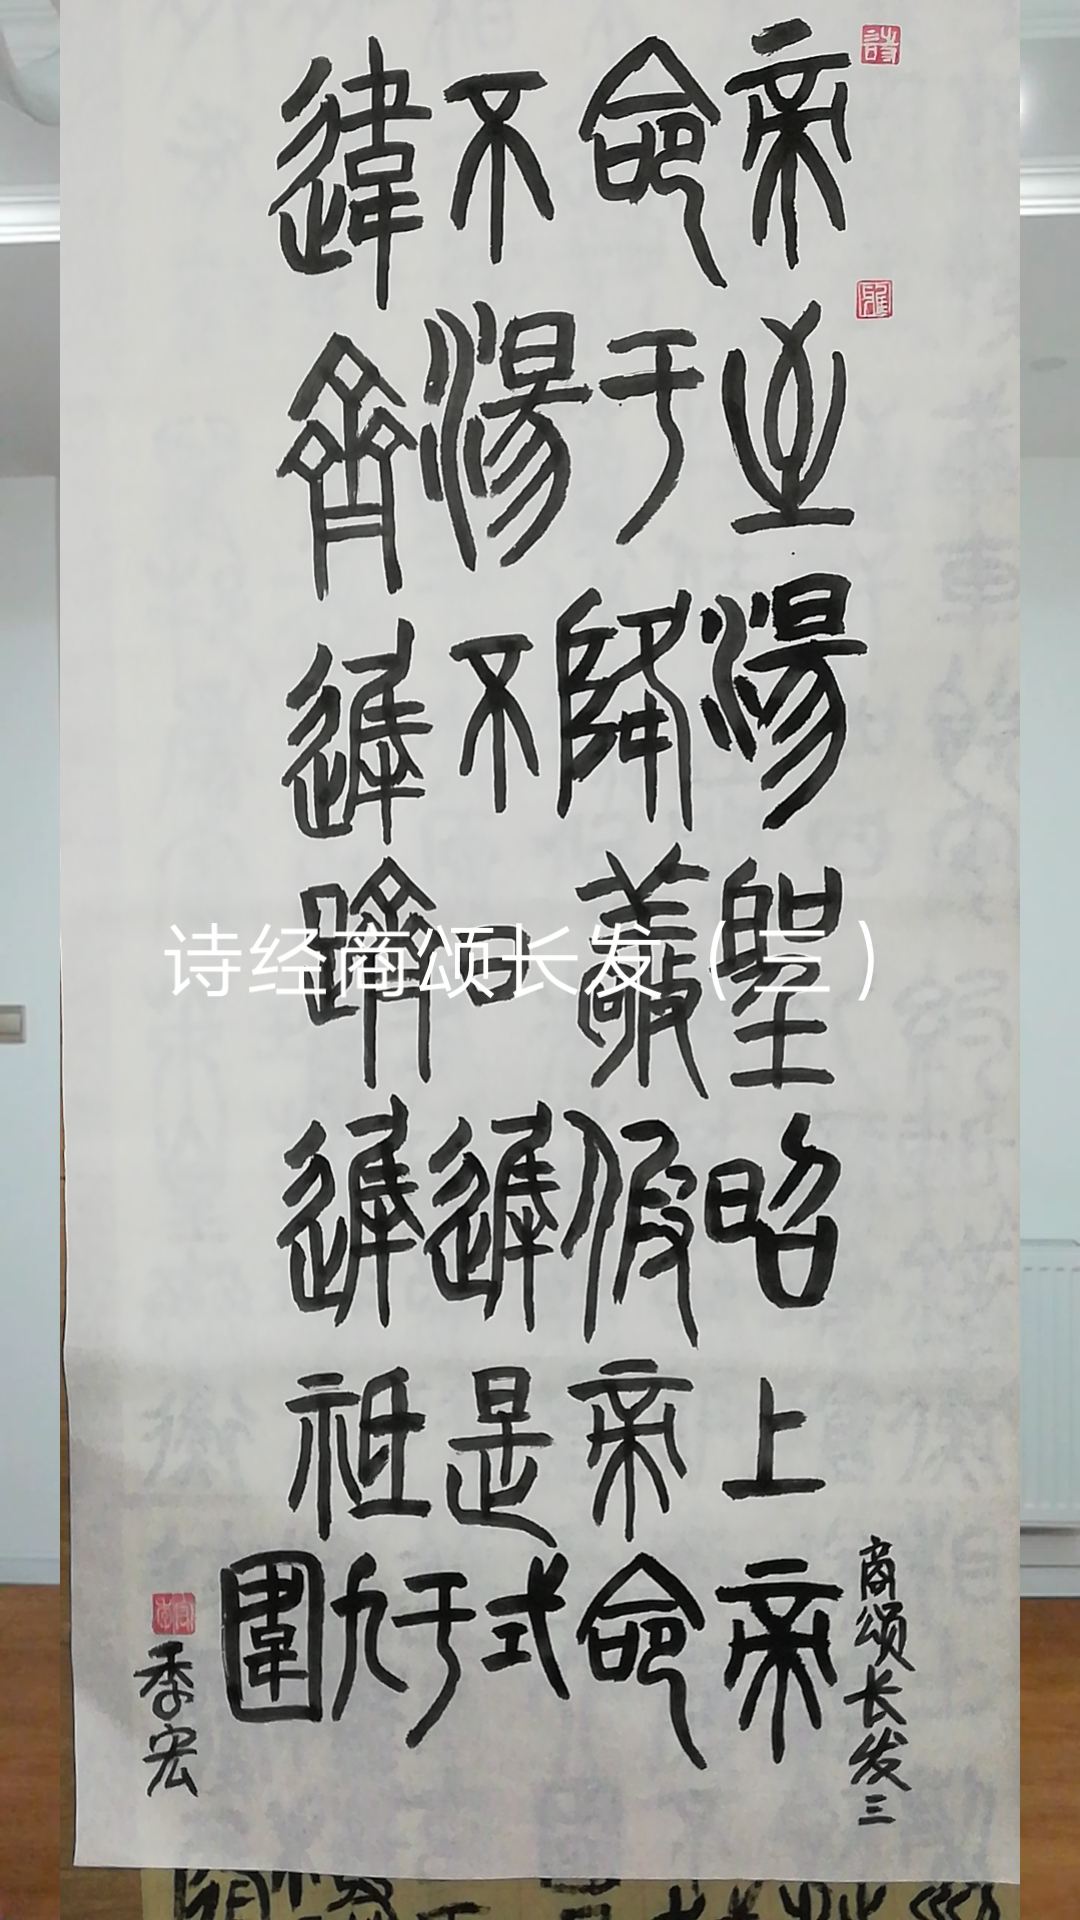 詩
雅
商颂长发三
帝命不違
至于湯齊
湯降不遲
聖敬日躋
昭假遲遲
上帝是祗
帝命式于九圍
季宏
诗经商颂长发（三）